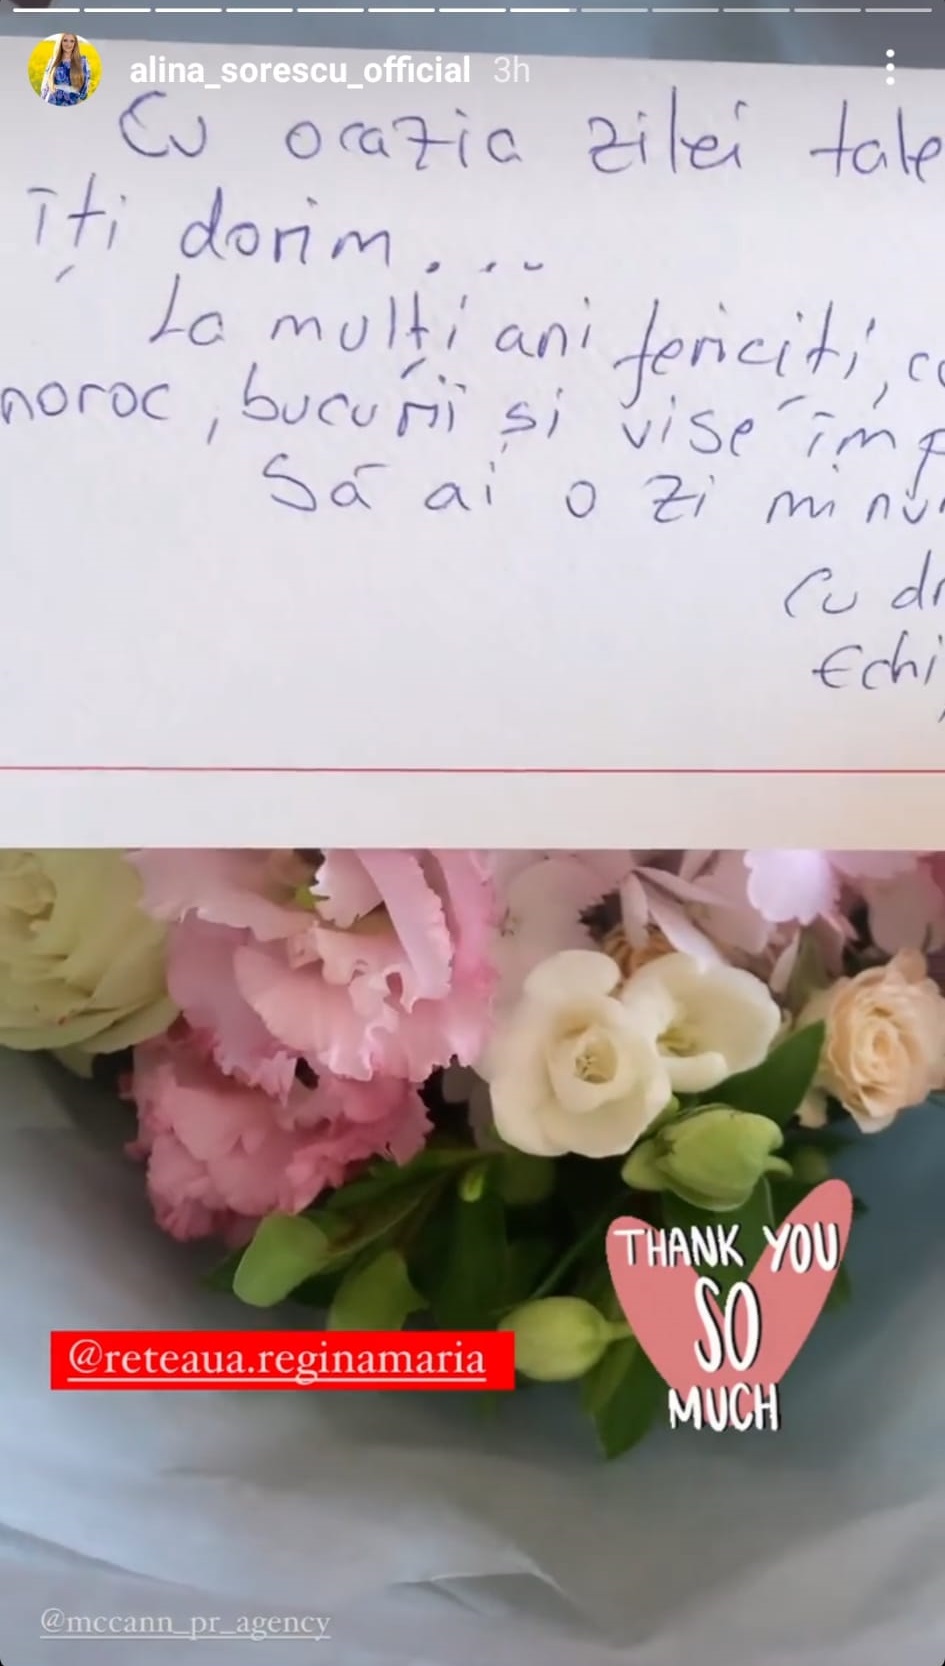 alina_sorescu_official 3h
Cu ocazia zilei tale
îți dorim...
La mulți ani fericiți,
noroc, bucurii și vise
Să ai o zi
Cu
@reteaua.reginamaria
THANK YOU
SO
MUCH
@mccann_pr_agency